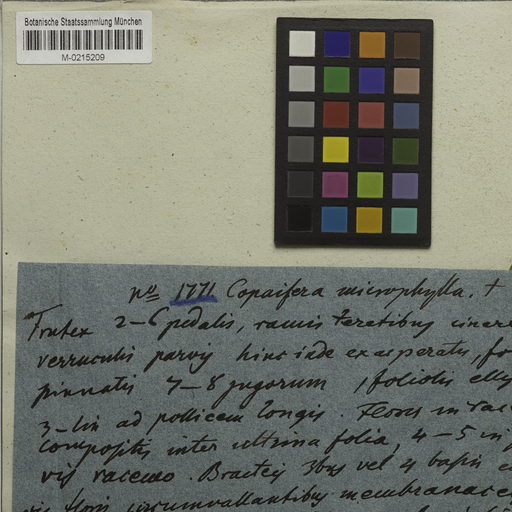 Botanische Staatssammlung München
M-0215209
no 1771 Copaifera microphylla. +
Frutex 2-6 pedalis, ramis teretibus cinere
verruculis parvis hinc inde exasperatis, fo
pinnatis 7-8 jugorum, foliolis elly
3-lin ad pollicem longis. Flores in rac
compositis inter ultima folia, 4-5 in
vis racemo. Bracteis 3bus vel 4 basin
vis floris circumvallantibus membranace